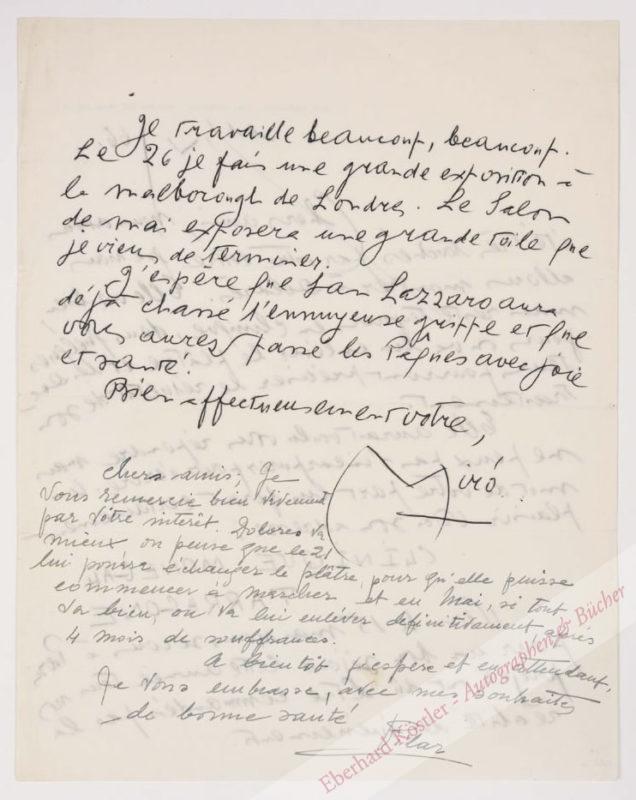 Je travaille beaucoup, beaucoup.
Le 26 je fais une grande exposition à
la malborough de Londres. Le Salon
de mai exposera une grande toile que
je viens de terminer.
J'espère que San Lazzaro aura
déjà chassé l'ennuyeuse grippe et que
vous aurez passé les Pâques avec joie
et santé.
Bien affectueusement votre,
Miró.
chers amis, Je
vous remercie bien vivement
par vôtre interêt. Dolores va
mieux on pense que le 21
lui pourra echanger le plâtre, pour qu'elle puisse
commencer à marcher et en Mai, si tout
va bien, on va lui enléver definitivament, après
4 mois de souffrances.
A bientôt j'espère et en attendant,
Je vous embrasse, avec mes souhaites
de bonne santé
Pilar
Eberhard Köstler - Autographen & Bücher